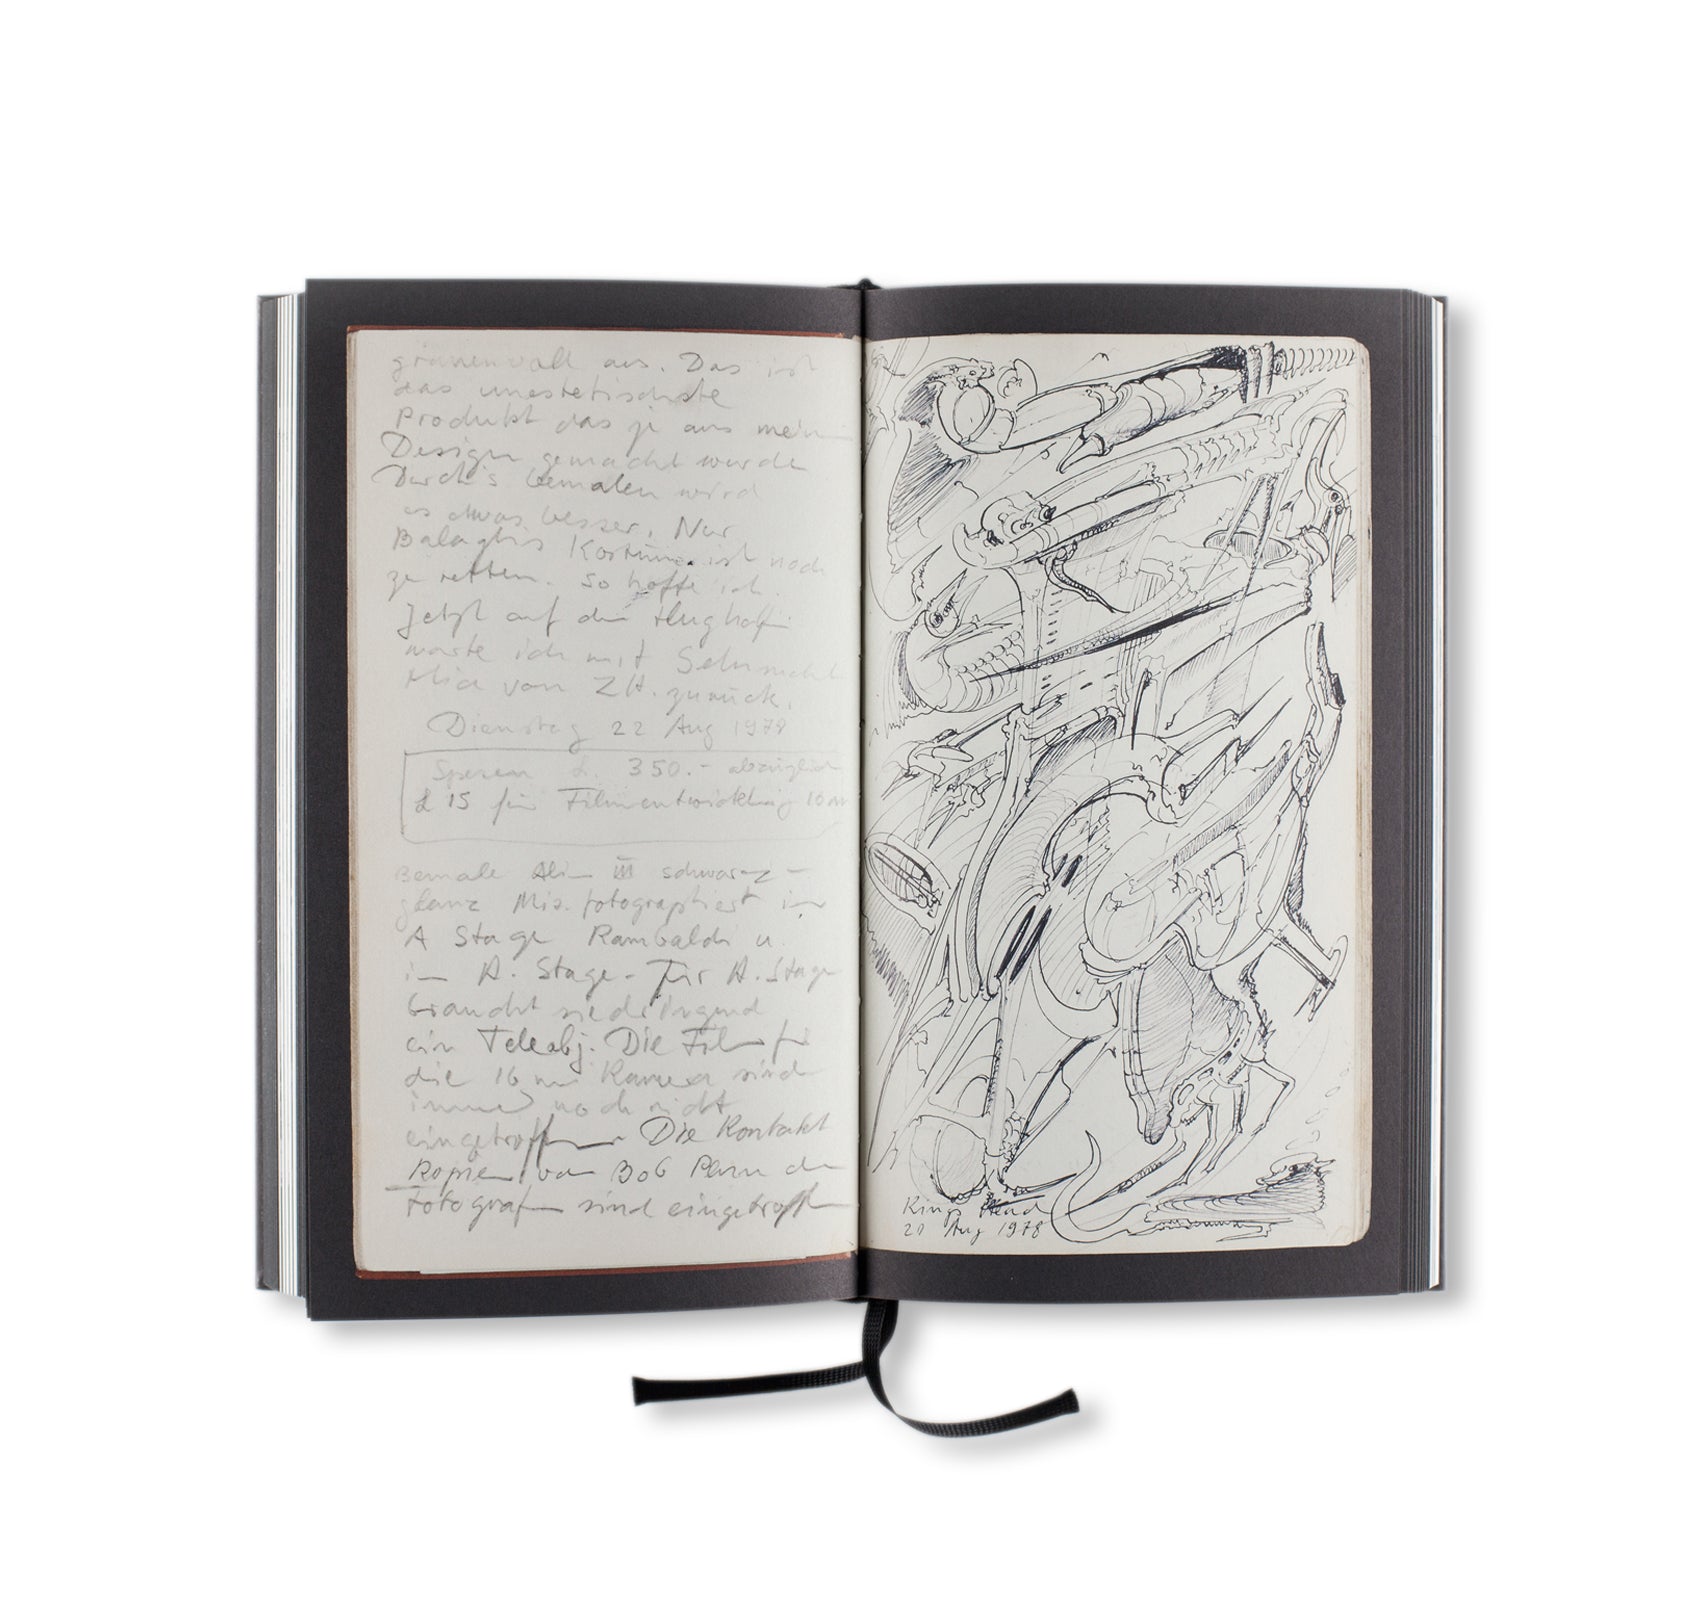 grauenvoll aus. Das ist
das unestetischste
Produkt das je aus mein
Design gemacht wurde
Durch's bemalen wird
es etwas besser. Nur
Balaghis Kostüm ist noch
zu retten. So hoffe ich.
Jetzt auf dem Flughafen
warte ich mit Sehnsucht
Mia von ZH. zurück.
Dienstag 22 Aug 1978
Spesen £. 350.- abzüglich
£ 15 für Filmentwicklung
Bemale Alien III schwarz-
glanz Mia fotographiert im
A Stage Rambaldi u.
im H. Stage. Für H. Stage
braucht sie dringend
ein Teleobj. Die Filme für
die 16 mm Kamera sind
immer noch nicht
eingetroffen. Die Kontakt
Kopien von Bob Penn dem
Fotografen sind eingetroffen
Kings Head
20 Aug 1978